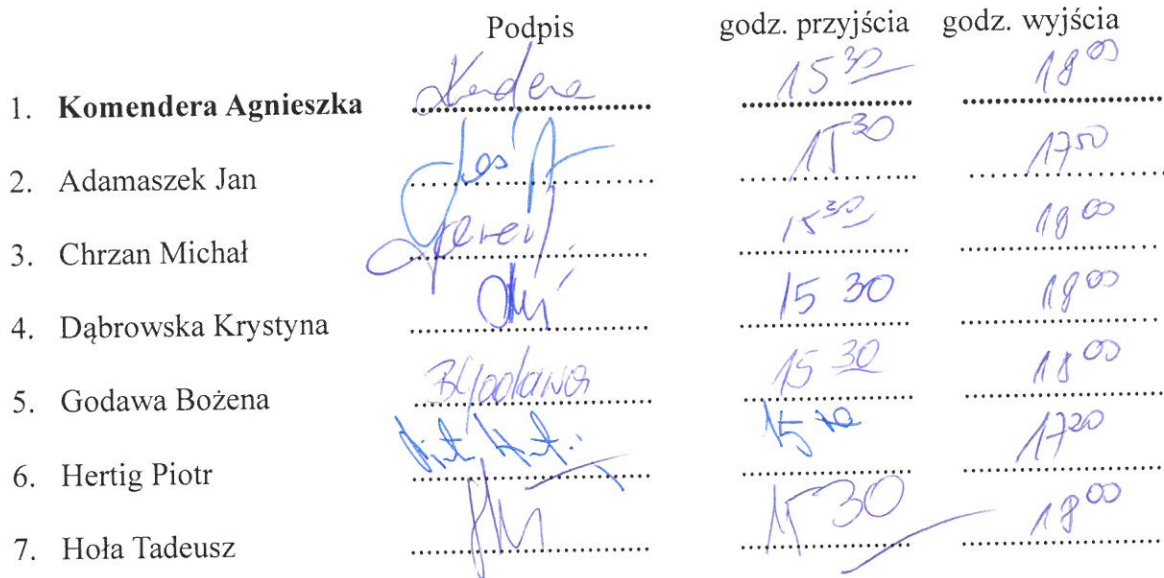 Podpis godz. przyjścia godz. wyjścia
1. Komendera Agnieszka 15 30 18 00
2. Adamaszek Jan 15 30 17 50
3. Chrzan Michał 15 30 18 00
4. Dąbrowska Krystyna 15 30 18 00
5. Godawa Bożena BGodawa 15 30 18 00
6. Hertig Piotr 15 17 20
7. Hoła Tadeusz 15 30 18 00